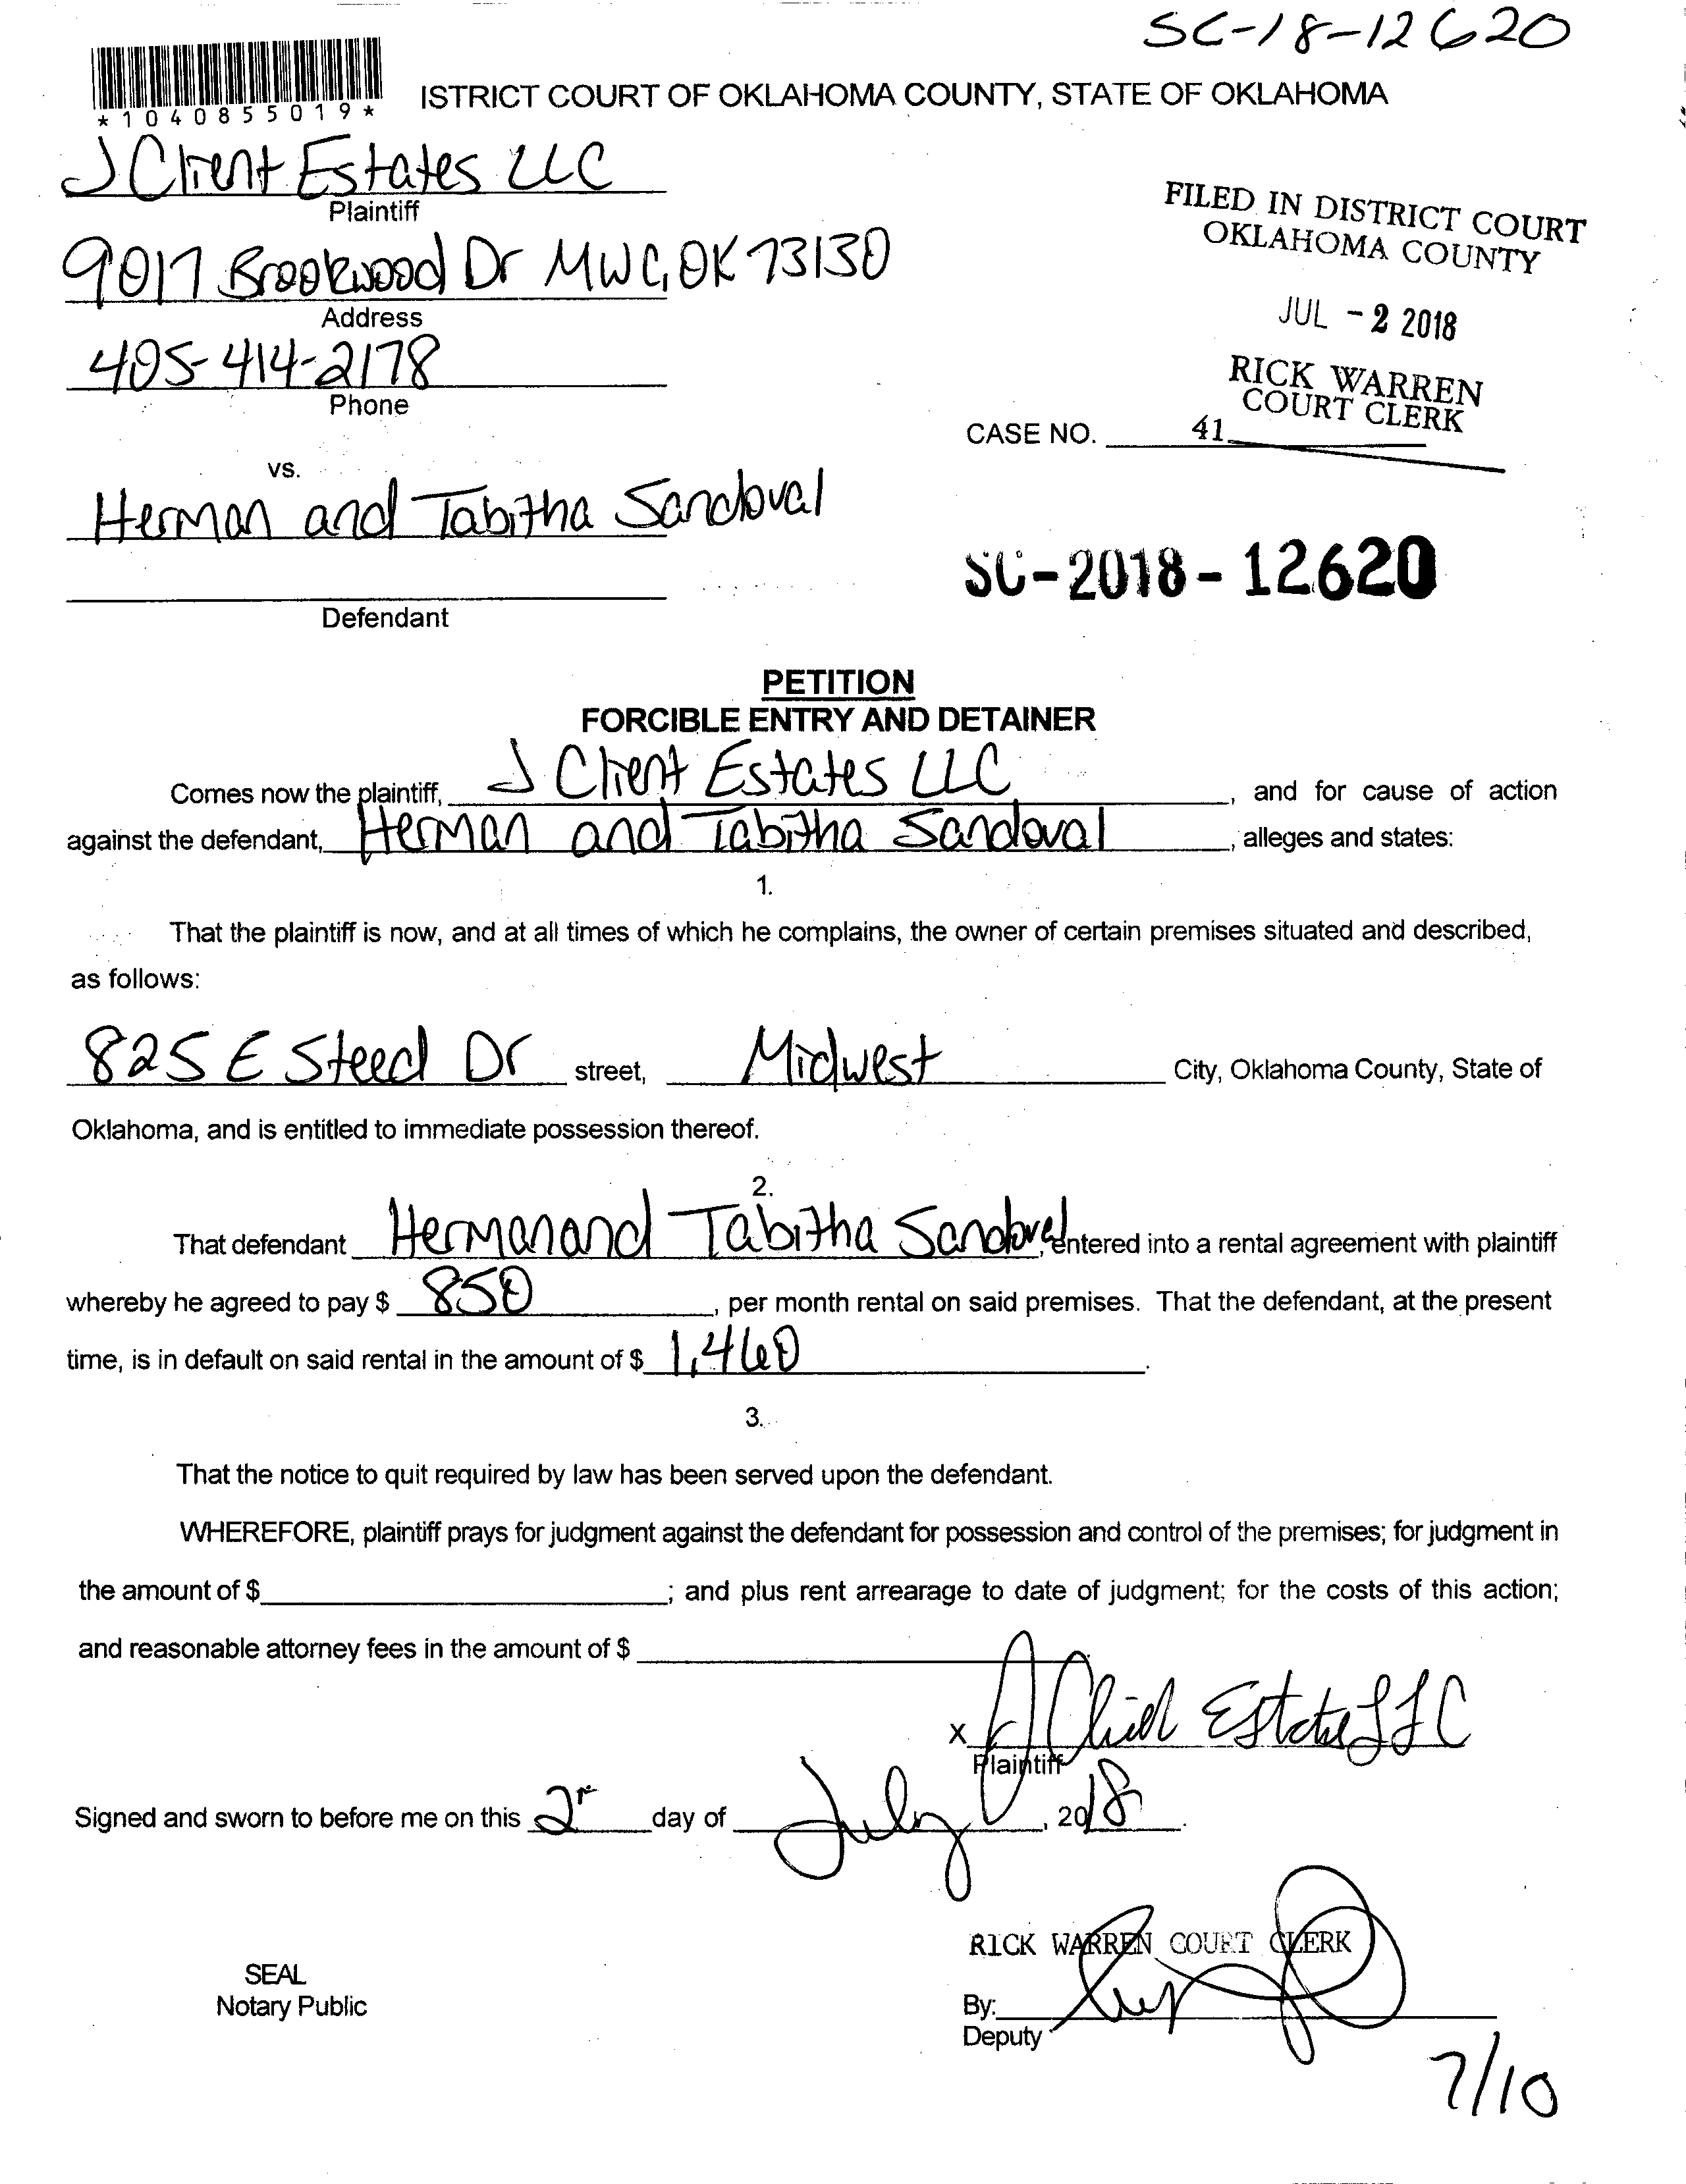 SC-18-12620
*1040855019*
ISTRICT COURT OF OKLAHOMA COUNTY, STATE OF OKLAHOMA
J Client Estates LLC
Plaintiff
FILED IN DISTRICT COURT
OKLAHOMA COUNTY
9017 Brookwood Dr MWC, OK 73130
Address
JUL - 2 2018
405-414-2178
Phone
RICK WARREN
COURT CLERK
CASE NO. 41
vs.
Herman and Tabitha Sandoval
Defendant
SC-2018-12620
PETITION
FORCIBLE ENTRY AND DETAINER
Comes now the plaintiff, J Client Estates LLC, and for cause of action
against the defendant, Herman and Tabitha Sandoval, alleges and states:
1.
That the plaintiff is now, and at all times of which he complains, the owner of certain premises situated and described,
as follows:
825 E Steed Dr street, Midwest City, Oklahoma County, State of
Oklahoma, and is entitled to immediate possession thereof.
2.
That defendant Herman and Tabitha Sandoval, entered into a rental agreement with plaintiff
whereby he agreed to pay $ 850, per month rental on said premises. That the defendant, at the present
time, is in default on said rental in the amount of $ 1,460.
3.
That the notice to quit required by law has been served upon the defendant.
WHEREFORE, plaintiff prays for judgment against the defendant for possession and control of the premises; for judgment in
the amount of $ ; and plus rent arrearage to date of judgment; for the costs of this action;
and reasonable attorney fees in the amount of $
X J Client Estates LLC
Plaintiff
Signed and sworn to before me on this 2 day of July, 2018.
RICK WARREN COURT CLERK
SEAL
Notary Public
By:
Deputy
7/10